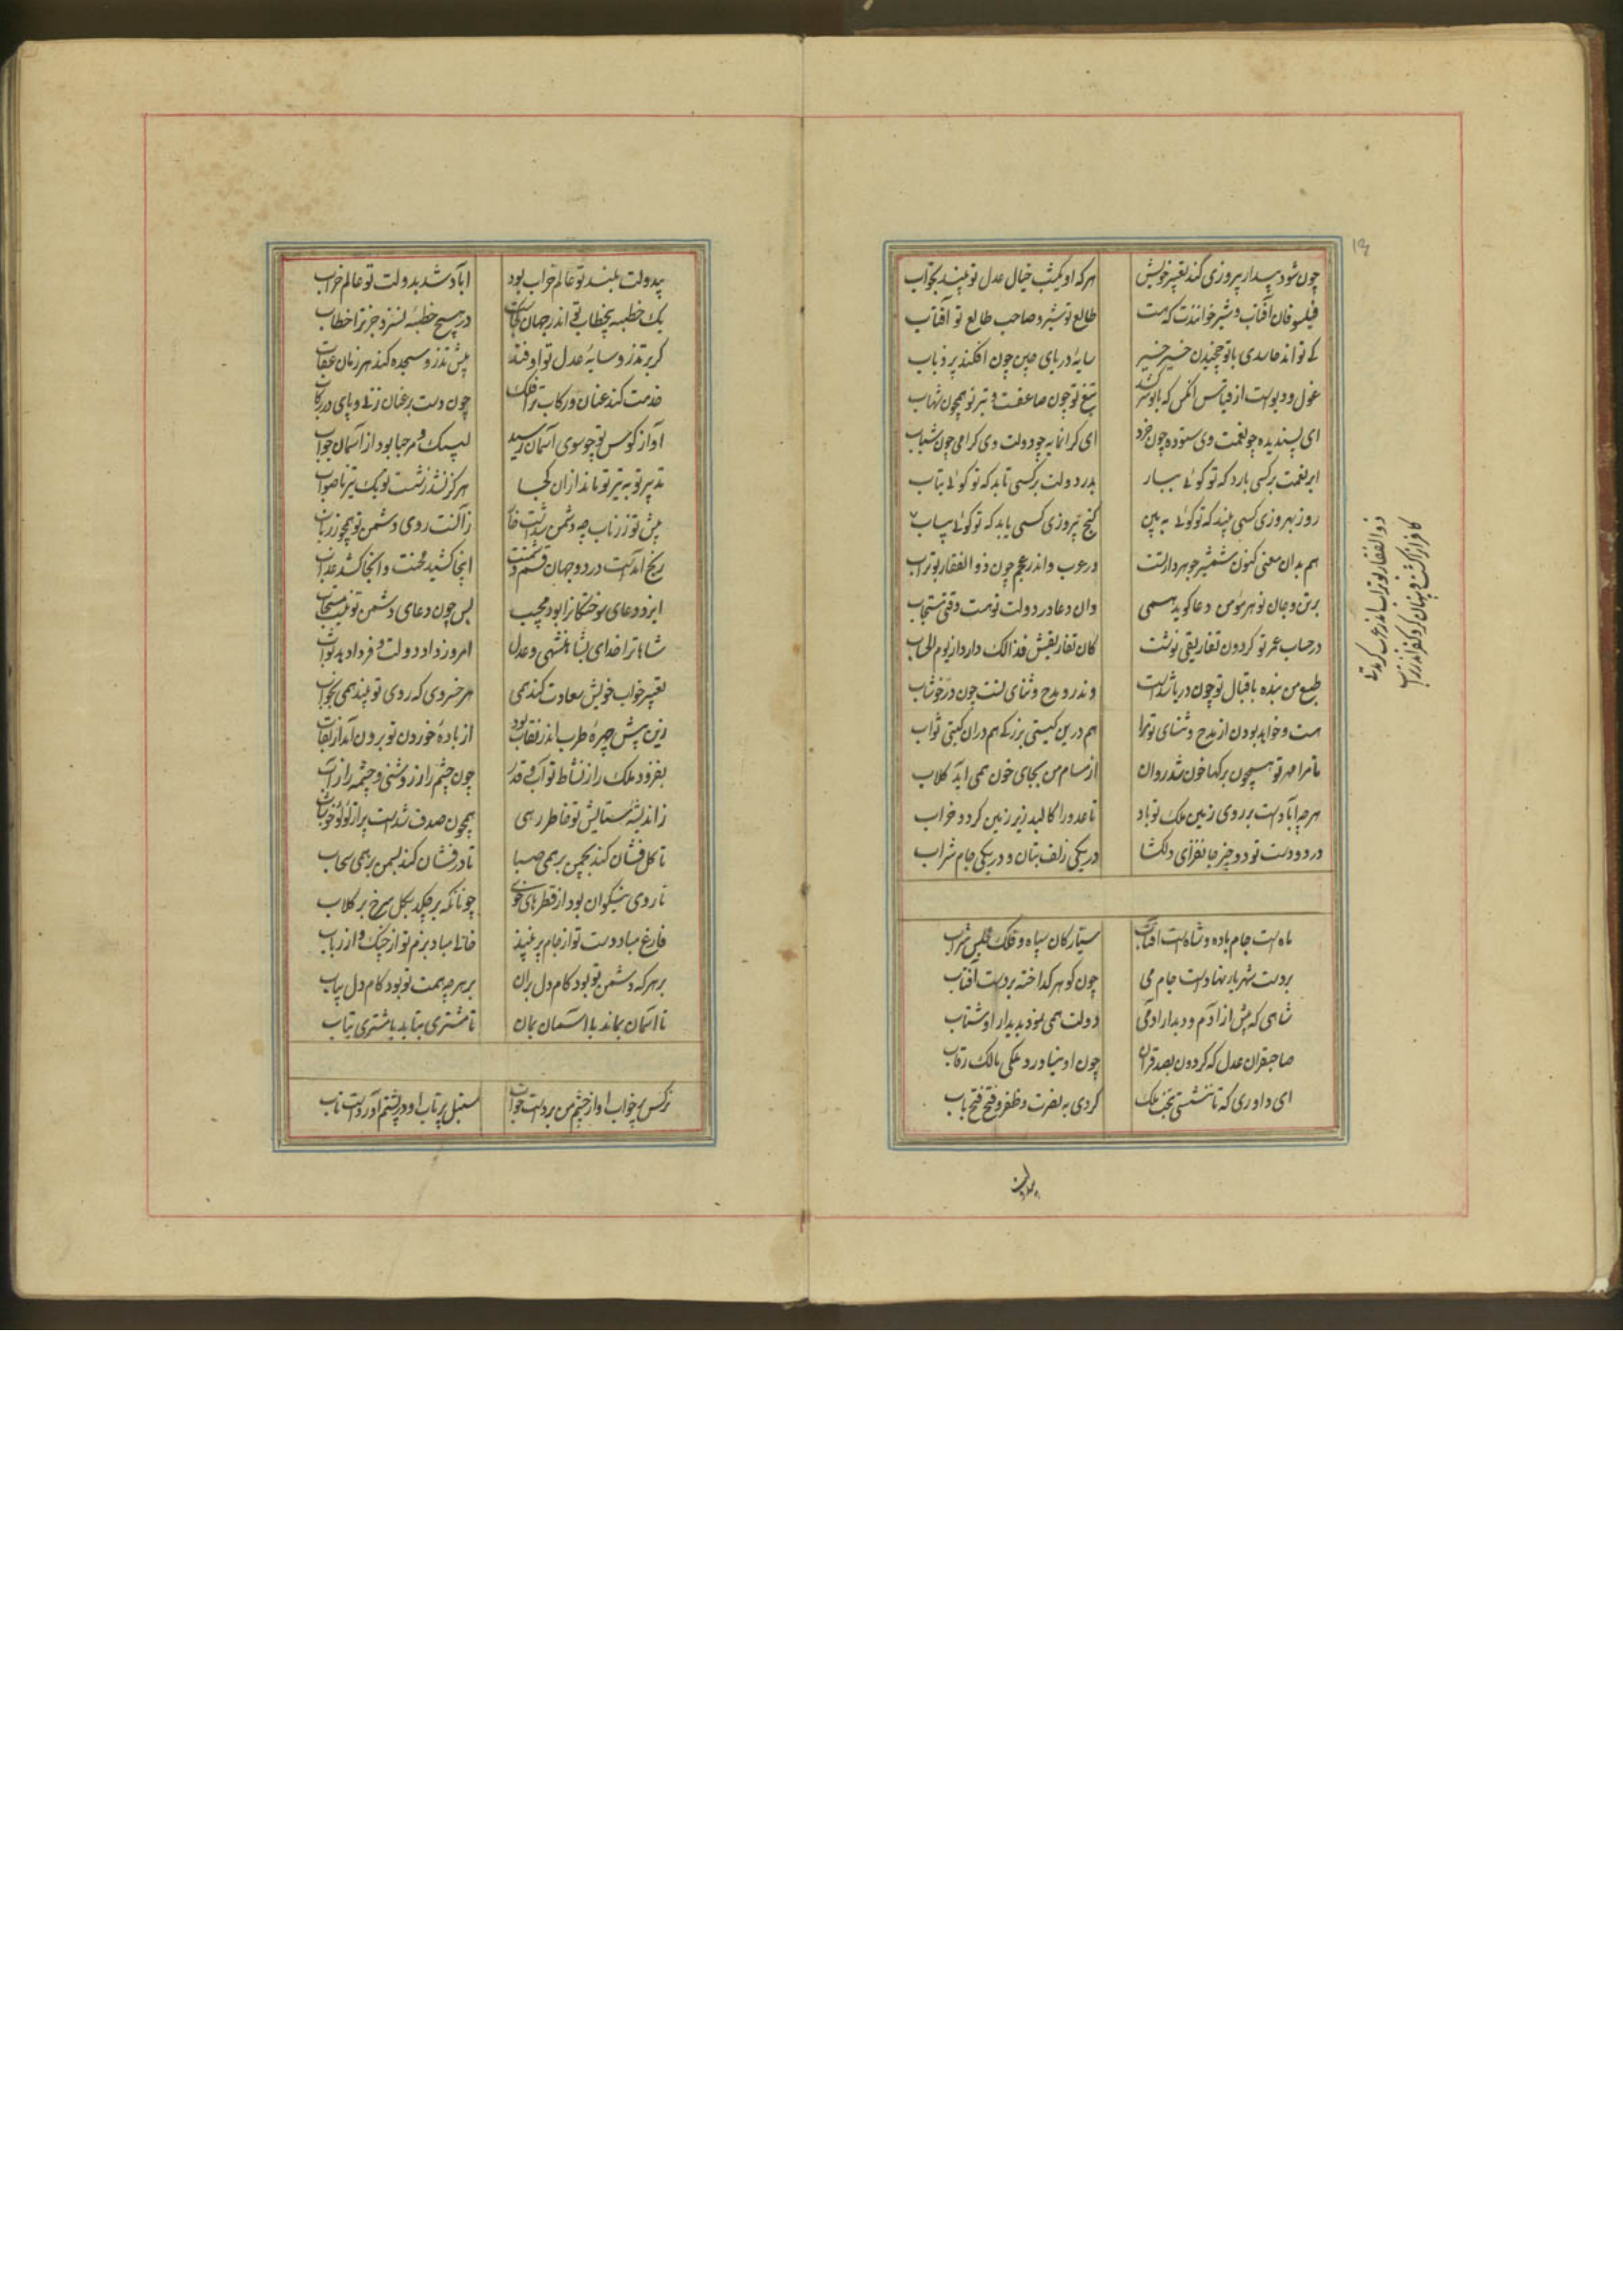 ۱۳
چون شود بیدار پیروزی کند تعبیر خویش هرکه او یکشب خیال عدل تو بیند بخواب
فیلسوفان آفتاب و شیر خوانندت که هست طالع تو شیر و صاحب طالع تو آفتاب
کے تواند حاسدی با تو چخیدن خیر خیر سایه دریای چین چون افکند پر ذباب
غول و دیوست از قیاس انکس که با تو سر کشد تیغ تو چون صاعقست و تیر تو همچون شهاب
ای پسندیده چو نعمت وی ستوده چون خرد ای کرانمایه چو دولت وی کرامی چون شباب
ابر نعمت برکسی بارد که تو کوئے ببار بدر دولت برکسی تابد که تو کوئے بتاب
روز بهروزی کسی بیند که تو کوئے به بین کنج پیروزی کسی یابد که تو کوئے بیاب
هم بدان معنی کنون شمشیر جوهردار تست در عرب واندر عجم چون ذوالفقار بوتراب
ذوالفقار بوتراب اندر عرب کردی
کافرانرا کشت و پنهان کرد کفر اندر
بر تن و جان تو هر مؤمن دعا کوید همی وان دعا در دولت تو هست وقتی مستجاب
در حساب عمر تو کردون تفاریقی نوشت کان تفاریقش فذالک دارد از یوم الحساب
طبع من بنده باقبال تو چون دریا شدست وندرو مدح و ثنای تست چون در خوشاب
هست و خواهد بودن از مدح و ثنای تو مرا هم درین کیتی بزرکے هم دران کیتی ثواب
تا مرا مهر تو همچون برکها خون شد روان از مسام من بجای خون همی اید کلاب
هرچه ابادست بر روی زمین ملک تو باد تا عدو را کالبد زیر زمین کردد خراب
در دو دست تو دو چیز جانفزای دلکشا در یکی زلف بتان و در یکی جام شراب
ماهست جام باده و شاهست افتاب سیارکان سپاه و فلک مجلس شراب
بر دست شهریار نهادست جام می چون کوهر کداخته بر دست آفتاب
شاهی که پیش از آدم و دیدار آدمی دولت همی نمود بدیدار او شتاب
صاحبقران عدل که کردون بصد قران چون او نیاورد ملکی مالک رقاب
ای داوری که تا بنشستی بتخت ملک کردی به نصرت و ظفر و فتح فتح باب
بیدولت
بیدولت بلند تو عالم خراب بود اباد شد بدولت تو عالم خراب
یک خطبه بیخطاب تو اندر جهان کجاست در هیچ خطبه نسزد جز ترا خطاب
کر بر تذرو سایه عدل تو اوفتد پیش تذرو سجده کند هر زمان عقاب
خدمت کند عنان و رکاب ترا فلک چون دست بر عنان زنے و پای در رکاب
آواز کوس تو چو سوی آسمان رسید لبیک و مرحبا بود از آسمان جواب
تدبیر تو به تیر تو ماند از ان کجا هرکز نشد ز شست تو یک تیر ناصواب
پیش تو زر ناب چه دشمن شدست خاک زآنست روی دشمن تو همچو زر ناب
رنج آمدست در دو جهان قسم دشمنت اینجا کشید محنت و آنجا کشد عذاب
ایزد دعای سوختکانرا بود مجیب پس چون دعای دشمن تو نیست مستجاب
شاها ترا خدای بشاهنشهی و عدل امروز داد دولت و فردا دهد ثواب
تعبیر خواب خویش سعادت کند همی هر خسروی که روی تو بیند همی بخواب
زین پیش چهره طرب اندر نقاب بود از باده خوردن تو برون آمد از نقاب
بفزود ملک را ز نشاط تو آب و قدر چون چشم را ز روشنی و چشمه را ز آب
ز اندیشه ستایش تو خاطر رهی همچون صدف شدست پر از لؤلؤ خوشاب
تا کل فشان کند بچمن بر همی صبا تا در فشان کند بسمن بر همی سحاب
تا روی نیکوان بود از قطره های خوی چونانکه بر چکد بکل سرخ بر کلاب
فارغ مباد دست تو از جام پر نبیذ خالی مباد بزم تو از چنک و از رباب
بر هرکه دشمن تو بود کام دل بران بر هرچه همت تو بود کام دل بیاب
تا اسمان بماند با اسمان بمان تا مشتری بتابد با مشتری بتاب
نرکس پر خواب او از چشم من بردست خواب سنبل پر تاب او در پشتم آوردست تاب